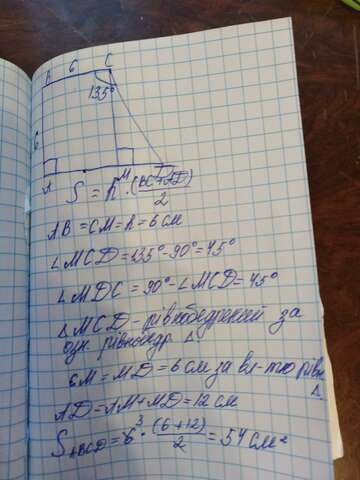 B 6 C
135°
6
A M D
S = h · (BC+AD)/2
AB = CM = h = 6 см
∠MCD = 135° - 90° = 45°
∠MDC = 90° - ∠MCD = 45°
△MCD - рівнобедрений за
озн. рівнобедр △
CM = MD = 6 см за вл-тю рівн
△
AD = AM + MD = 12 см
S ABCD = 6³ · (6+12)/2 = 54 см²